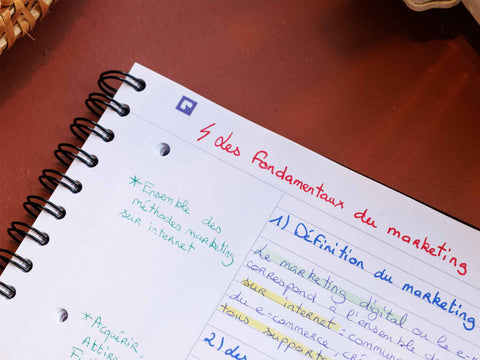 Les fondamentaux du marketing
*Ensemble des
méthodes marketing
sur internet
1) Définition du marketing
Le marketing digital ou le
correspond à l'ensemble
sur internet : commun
du e-commerce
tous support
2) des
*Acquérir